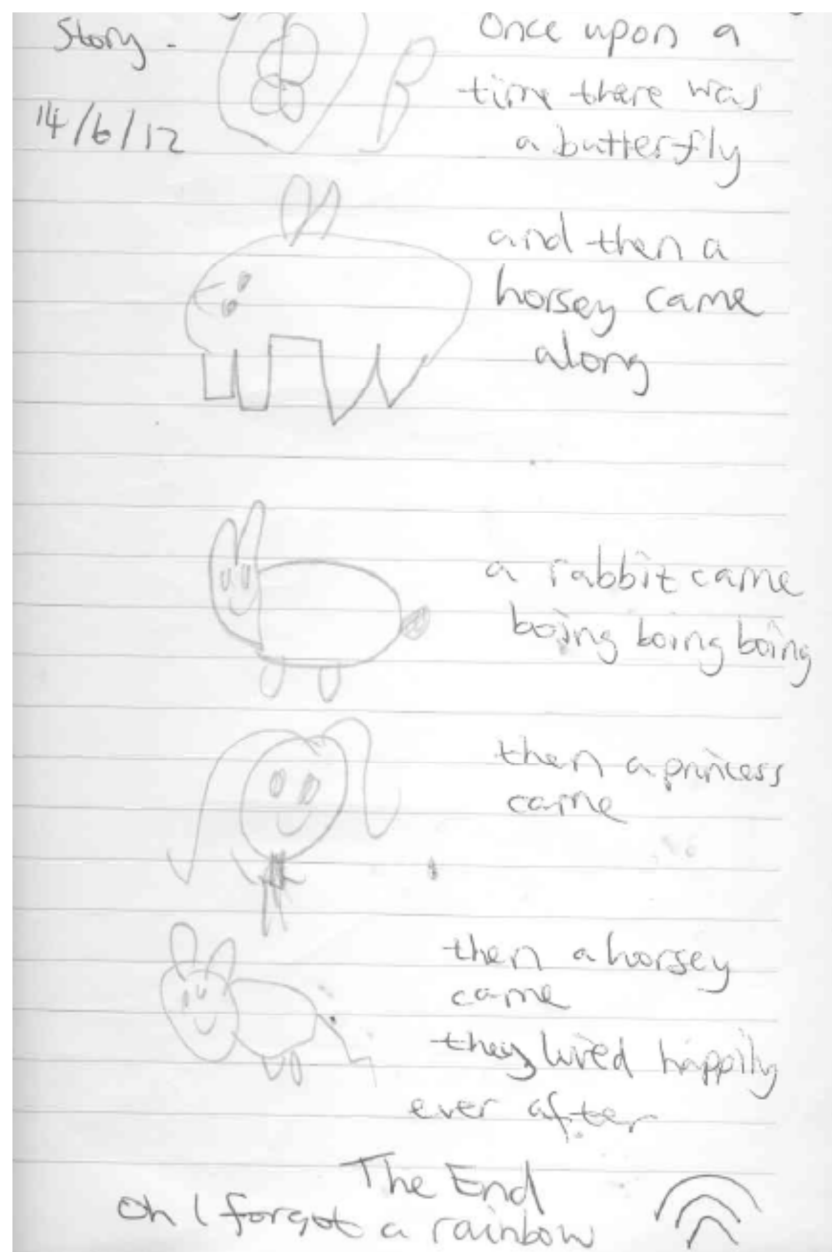 Story.
14/6/12
Once upon a
time there was
a butterfly
and then a
horsey came
along
a rabbit came
boing boing boing
then a princess
came
then a horsey
came
they lived happily
ever after
The End
Oh I forgot a rainbow